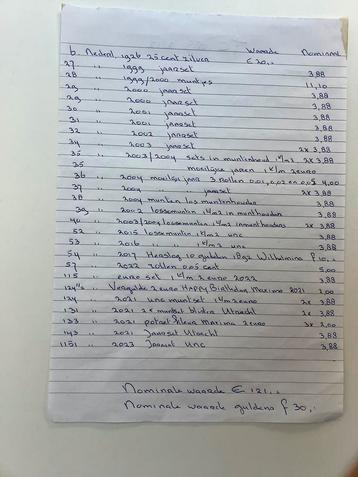 Waarde Nominale
6. Nederl. 1926 25 cent zilver € 20,-
27 " 1999 jaarset 3,88
28 " 1999/2000 muntjes 11,10
29 " 2000 jaarset 3,88
29 " 2000 jaarset 3,88
30 " 2001 jaarset 3,88
31 " 2001 jaarset 3,88
32 " 2002 jaarset 3,88
34 " 2003 jaarset 2x 3,88
35 " 2003/2004 sets in muntenhoud 1 t/m 2 2x 3,88
35 moeilijke jaren 1 t/m 2 euro
36 " 2004 moeilijk jaar 3 rollen 0.01, 0.02 en 0.05 4,00
37 " 2004 " " jaarset 2x 3,88
38 " 2004 munten los muntenhouder 3,88
39 " 2002 losse munten 1 t/m 2 in munthouders 3,88
40 " 2003/2004 losse munten 1 t/m 2 in munthouders 2x 3,88
52 " 2015 losse munten 1 t/m 2 unc 3,88
53 " 2016 " " 1 t/m 2 unc 3,88
54 " 2017 Herslag 10 gulden 1892 Wilhelmina f 10,-
57 " 2022 rollen 0.05 cent 5,00
115 " euro set 1 t/m 2 euro 2022 3,88
124 " Vergulde 2 euro Happy Birthday Maxima 2021 2,00
124 " 2021 unc muntset 1 t/m 2 euro 2x 3,88
131 " 2021 Utrecht 2x 3,88
133 " 2021 Maxima 2 euro 3x 2,00
143 " 2021 Jaarset Utrecht 3,88
1151 " 2023 Jaarset unc 3,88
Nominale waarde € 121,-
Nominale waarde guldens f 30,-